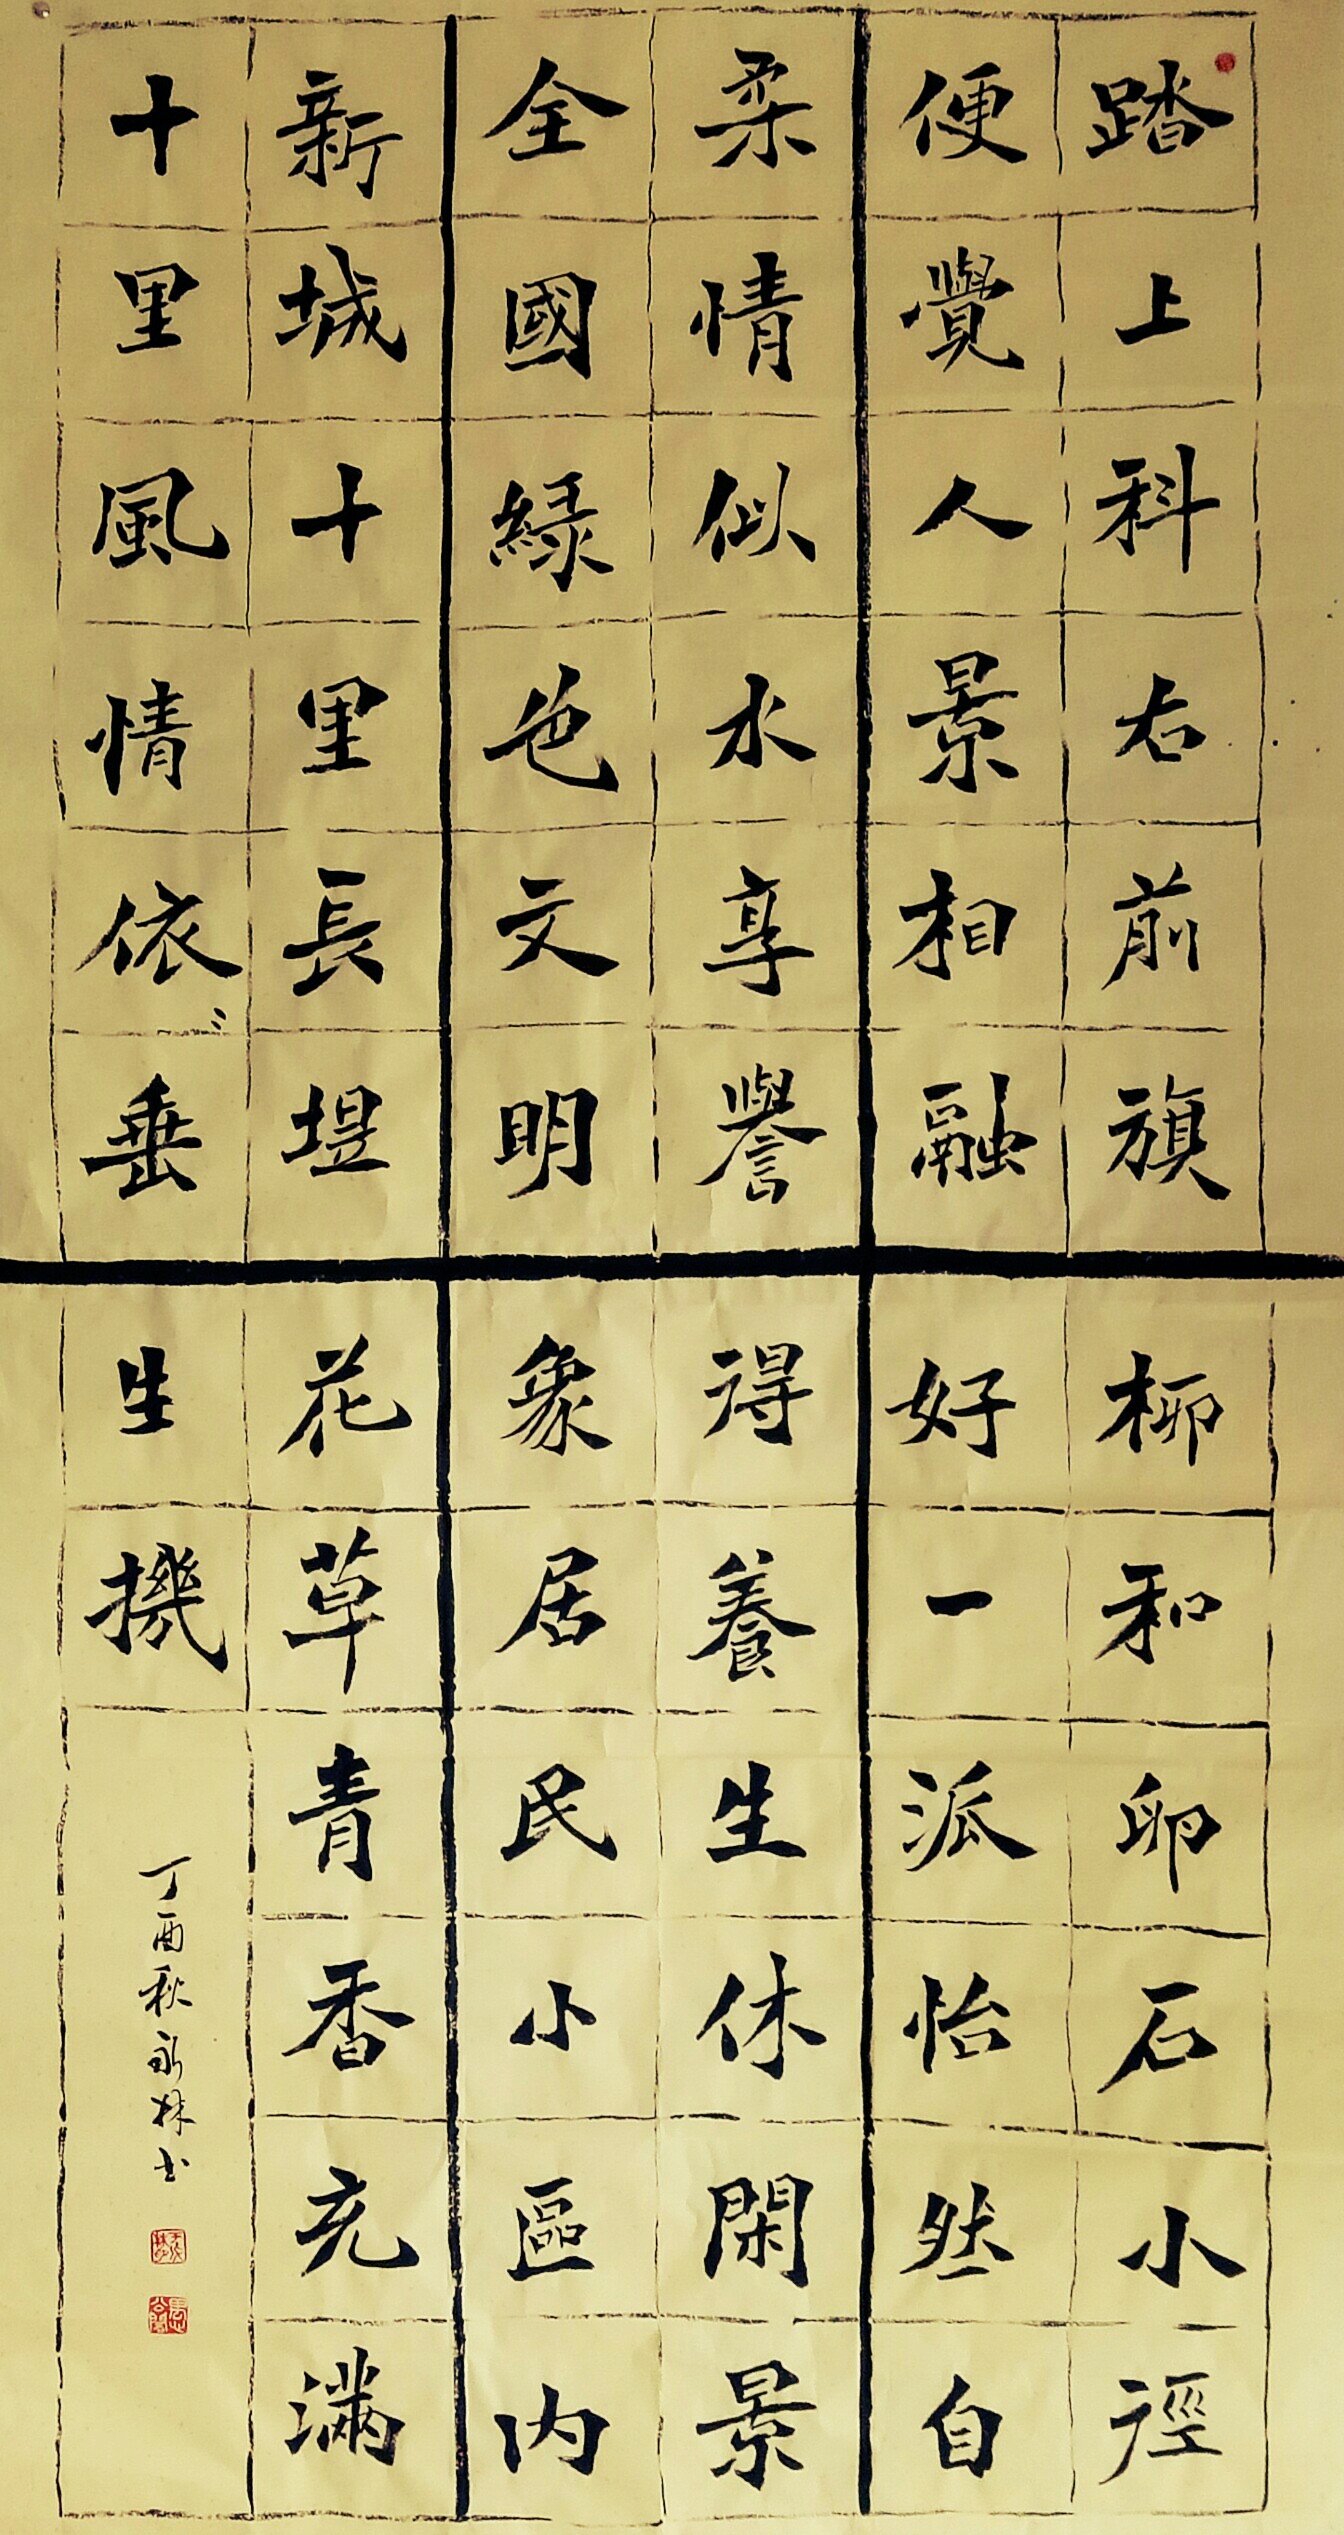 踏上科右前旗柳和卵石小徑
便覺人景相融好一派怡然自
柔情似水享譽得養生休閑景
全國綠色文明象居民小區内
新城十里長堤花草青香充滿
十里風情依〻垂生機
丁酉秋永林书